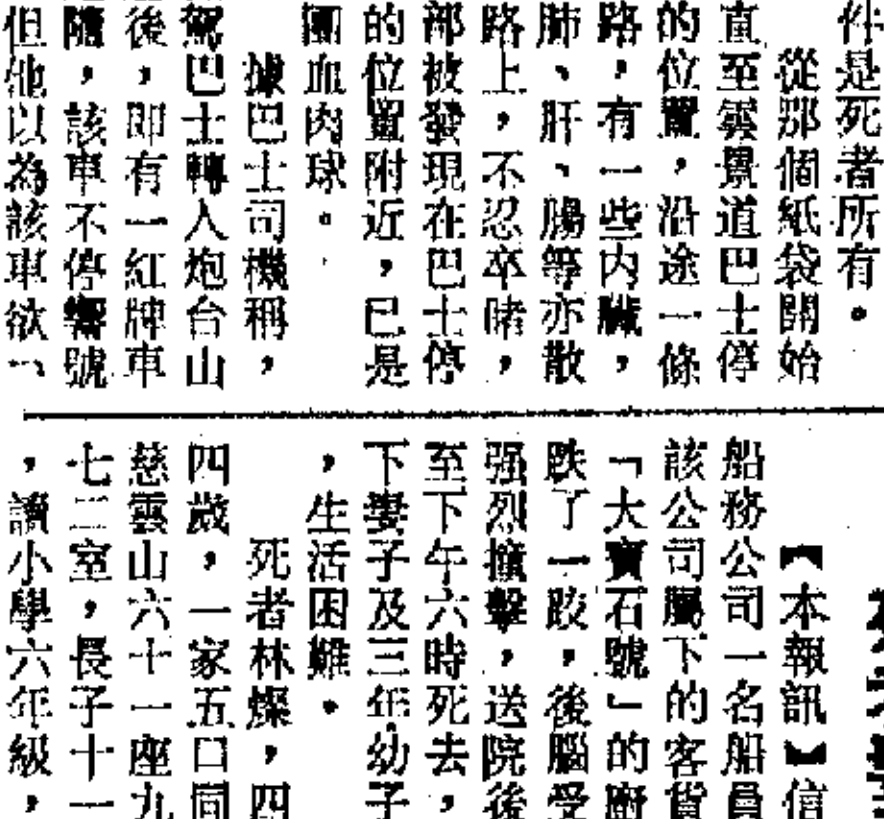 件是死者所有。
從那個紙袋開始
直至雲景道巴士停
的位置，沿途一條
路，有一些内臟，
肺、肝、腸等亦散
路上，不忍卒睹，
部被發現在巴士停
的位置附近，已是
團血肉球。
據巴士司機稱，
駕巴士轉入炮台山
後，即有一紅牌車
隨，該車不停響號
但他以為該車欲
【本報訊】信
船務公司一名船員
該公司屬下的客貨
「大寶石號」的廚
跌了一跤，後腦受
强烈撞擊，送院後
至下午六時死去，
下妻子及三年幼子
，生活困難。
死者林燦，四
四歲，一家五口同
慈雲山六十一座九
七二室，長子十一
，讀小學六年級，